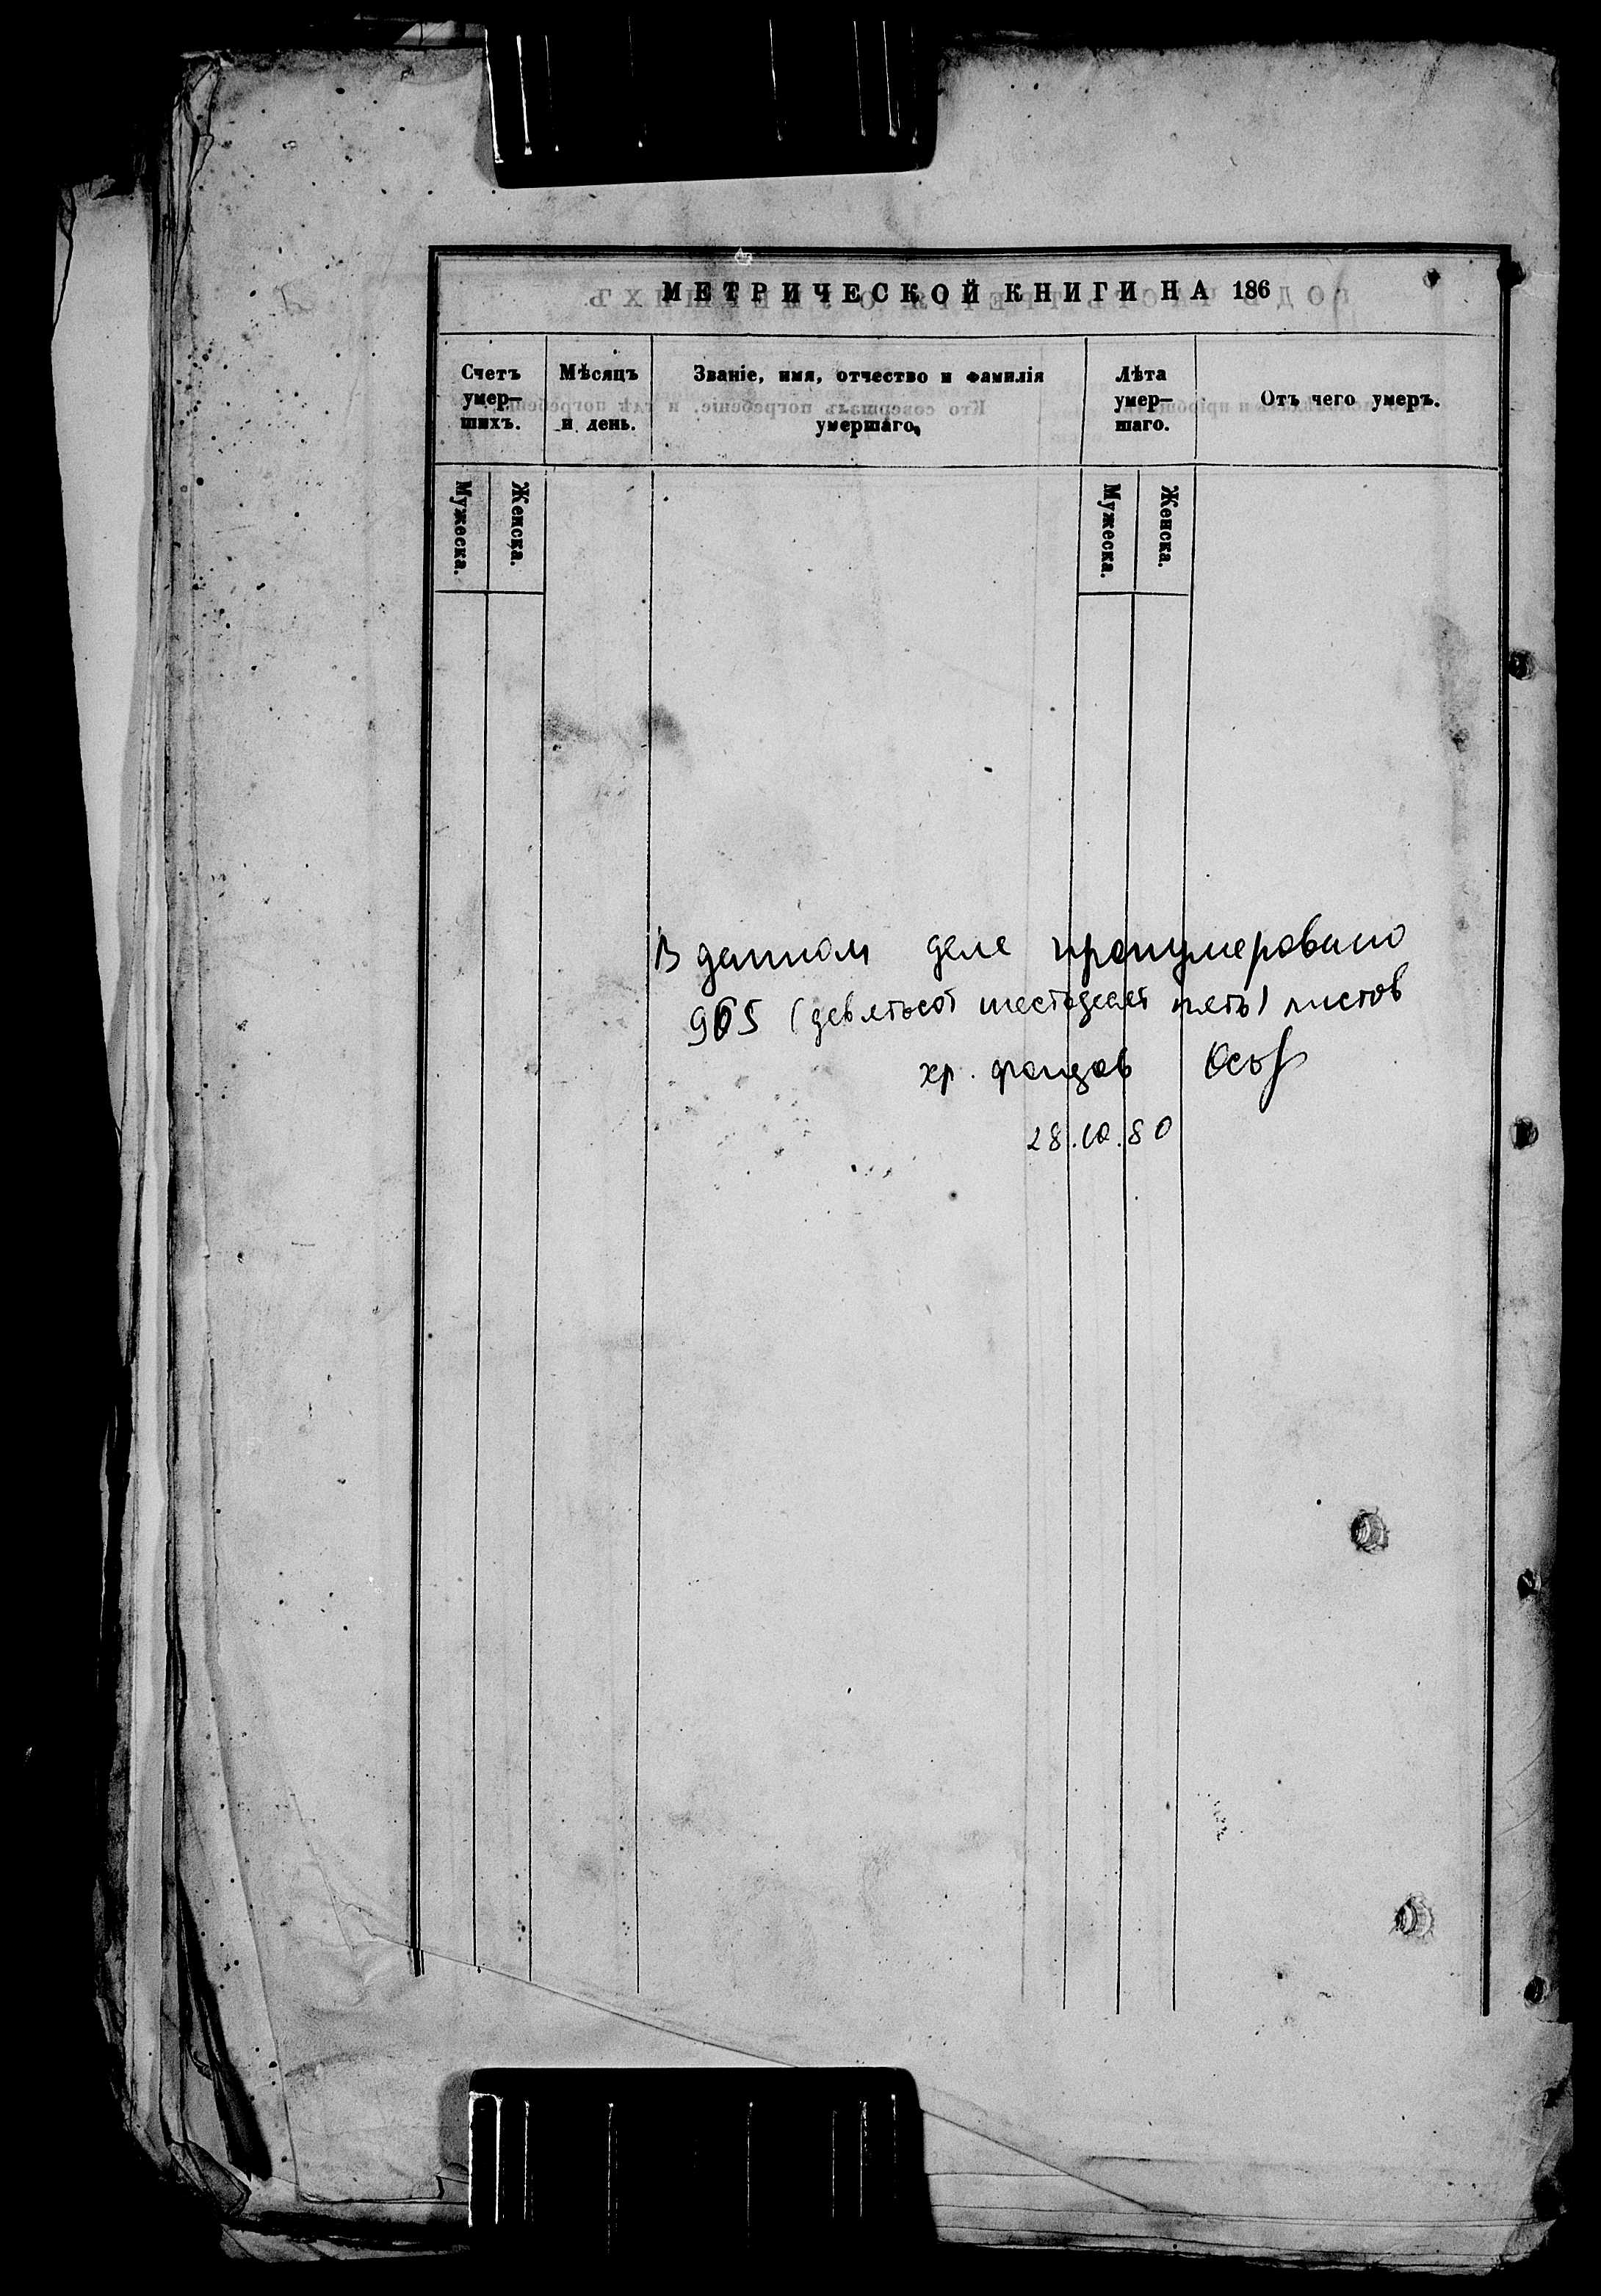 МЕТРИЧЕСКОЙ КНИГИ НА 186
Счетъ умер- шихъ.
Мѣсяцъ и день.
Званіе, имя, отчество и фамилія умершаго.
Лѣта умер- шаго.
Отъ чего умеръ.
Мужеска.
Женска.
Мужеска.
Женска.
В данном деле пронумеровано
965 (девятьсот шестьдесят пять) листов
хр. фондов
28.10.80